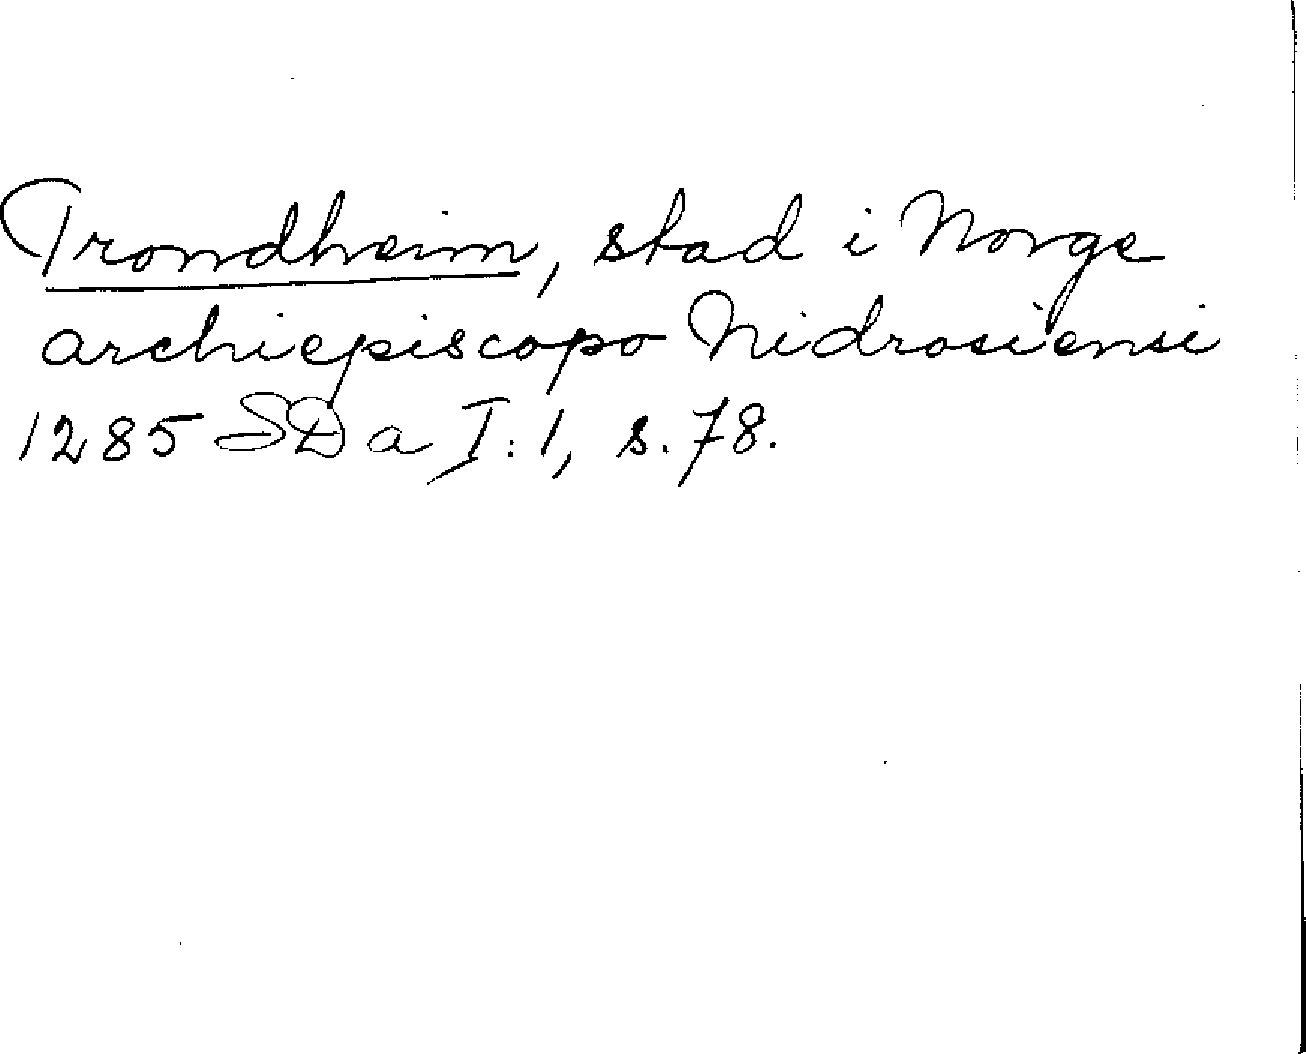 Trondheim, stad i Norge
archiepiscopo Nidrosiensi
1285 SD a I:1, s. 78.